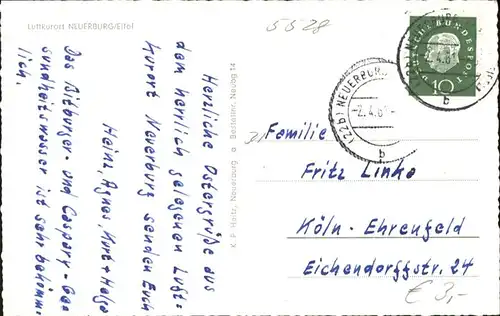 Luftkurort NEUERBURG/Eifel
5528
Herzliche Ostergrüße aus
dem herrlich gelegenen Luft-
kurort Neuerburg senden Euch
Heinz, Agnes, Kurt + Helga
Das Bitburger- und Caspary-Ge
sundheitswasser ist sehr bekömm
lich.
K. P. Hoitz, Neuerburg
DEUTSCHE BUNDESPOST
10
(22b) NEUERBURG
-2.4.6
b
b
Familie
Fritz Linke
Köln-Ehrenfeld
Eichendorffstr. 24
€ 3,-